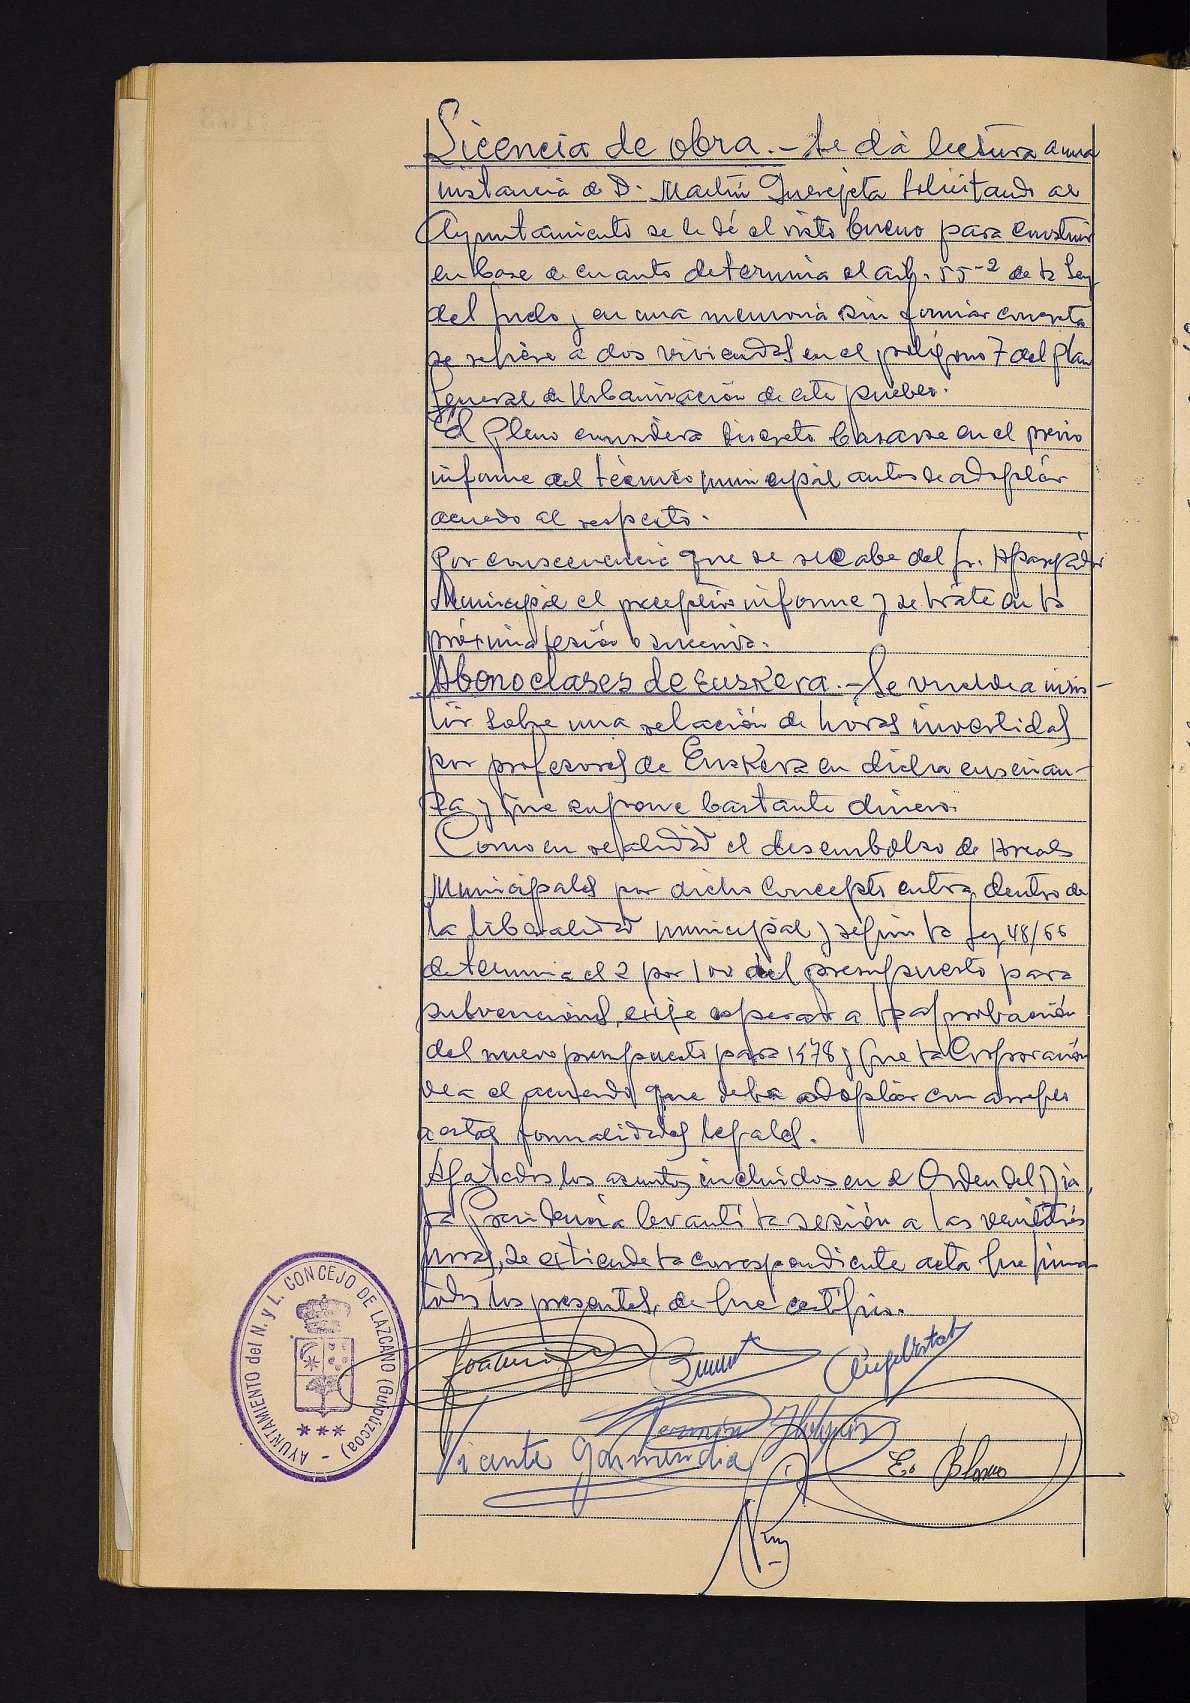 Licencia de obra.- Se dá lectura a una
instancia de D. Martín Querejeta solicitando al
Ayuntamiento se le dé el visto bueno para construir
en base de cuanto determina el art. 55-2 de la Ley
del Suelo y en una memoria sin firmar concreta
se refiere a dos viviendas en el polígono 7 del plan
General de Urbanización de este pueblo.
El Pleno considera discreto basarse en el previo
informe del técnico municipal antes de adoptar
acuerdo al respecto.
Por consecuencia que se recabe del Sr. Aparejador
Municipal el preceptivo informe y se trate en la
próxima sesión o sucesiva.
Abono clases de Euskera.- Se vuelve a insis-
tir sobre una relación de horas invertidas
por profesores de Euskera en dicha enseñan-
za y que supone bastante dinero.
Como en realidad el desembolso de Arcas
Municipales por dicho concepto entra dentro de
la liberalidad municipal y según la Ley 48/66
determina el 2 por 100 del presupuesto para
subvenciones, exije esperar a la aprobación
del nuevo presupuesto para 1978 y que la Corporación
vea el acuerdo que deba adoptar con arreglo
a estas formalidades legales.
Agotados los asuntos incluidos en el Orden del Día,
la Presidencia levantó la sesión a las veintitrés
horas, se extiende la correspondiente acta que firman
todos los presentes, de que certifico.
Vicente Garmendia
E. Blanco
AYUNTAMIENTO del N. y L. CONCEJO DE LAZCANO (Guipúzcoa)